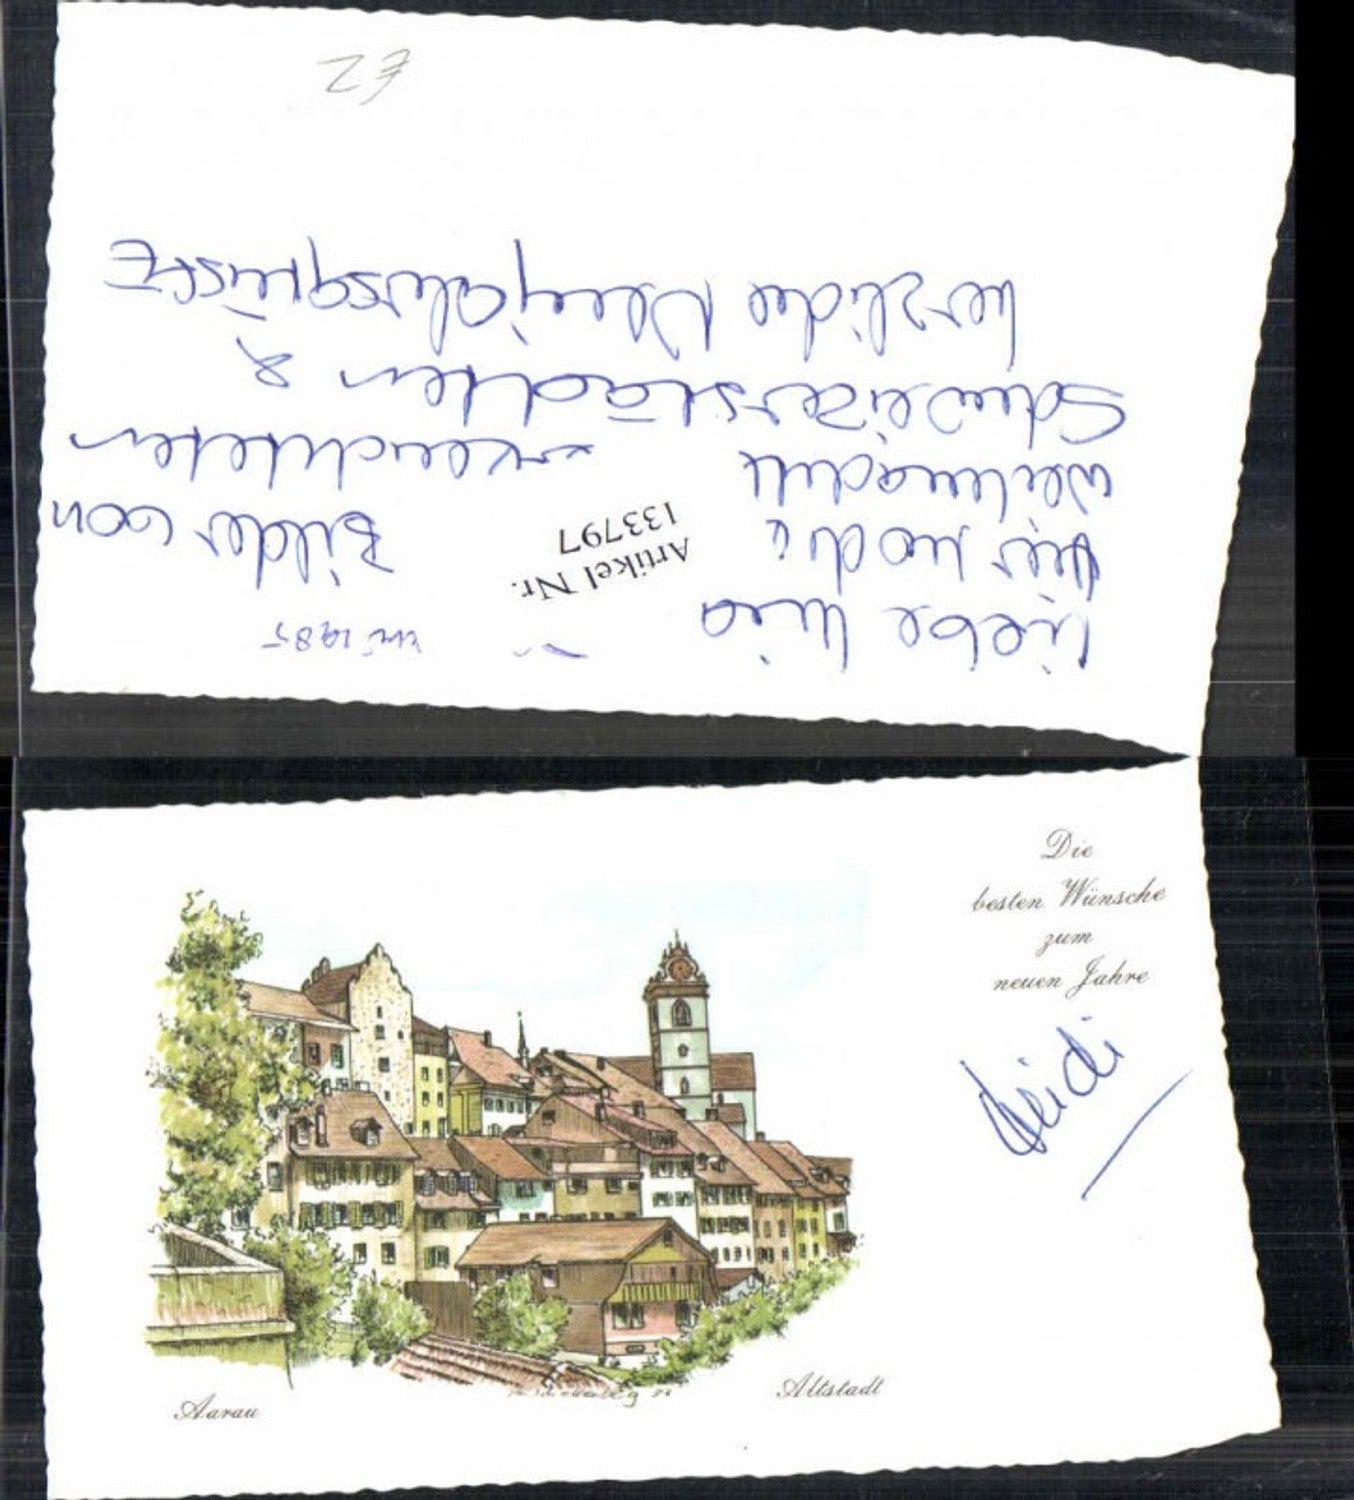 Liebe Mia
Hier noch
weihnachtl
Bilder von
erleuchteten
Schweizerstädten &
herzliche Neujahrsgrüsse
1985
Artikel Nr.
133797
€ 2
Die
besten Wünsche
zum
neuen Jahre
Heidi
Aarau
Altstadt